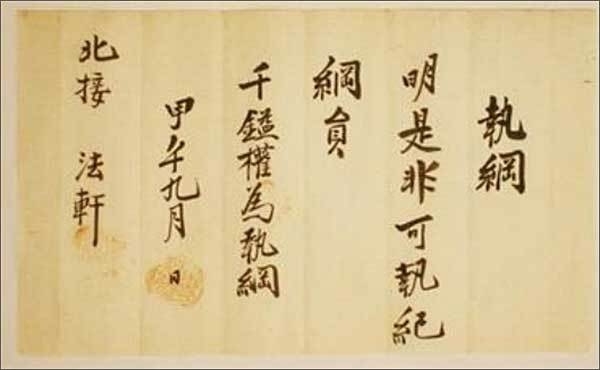 執綱
明是非可執紀
綱貟
千鎰權為執綱
甲午九月 日
北接 法軒